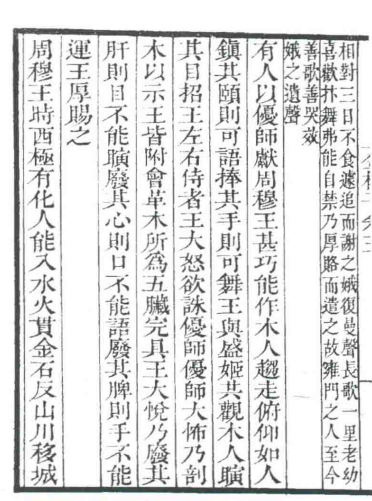 相對三日不食遽追而謝之娥復曼聲長歌一里老幼
喜歡抃舞弗能自禁乃厚賂而遣之故雍門之人至今
善歌善哭效
娥之遺聲
有人以優師獻周穆王甚巧能作木人趨走俯仰如人
鎮其頤則可語捧其手則可舞王與盛姬共觀木人瞚
其目招王左右侍者王大怒欲誅優師優師大怖乃剖
木以示王皆附會革木所爲五臟完具王大悅乃廢其
肝則目不能瞚廢其心則口不能語廢其脾則手不能
運王厚賜之
周穆王時西極有化人能入水火貫金石反山川移城